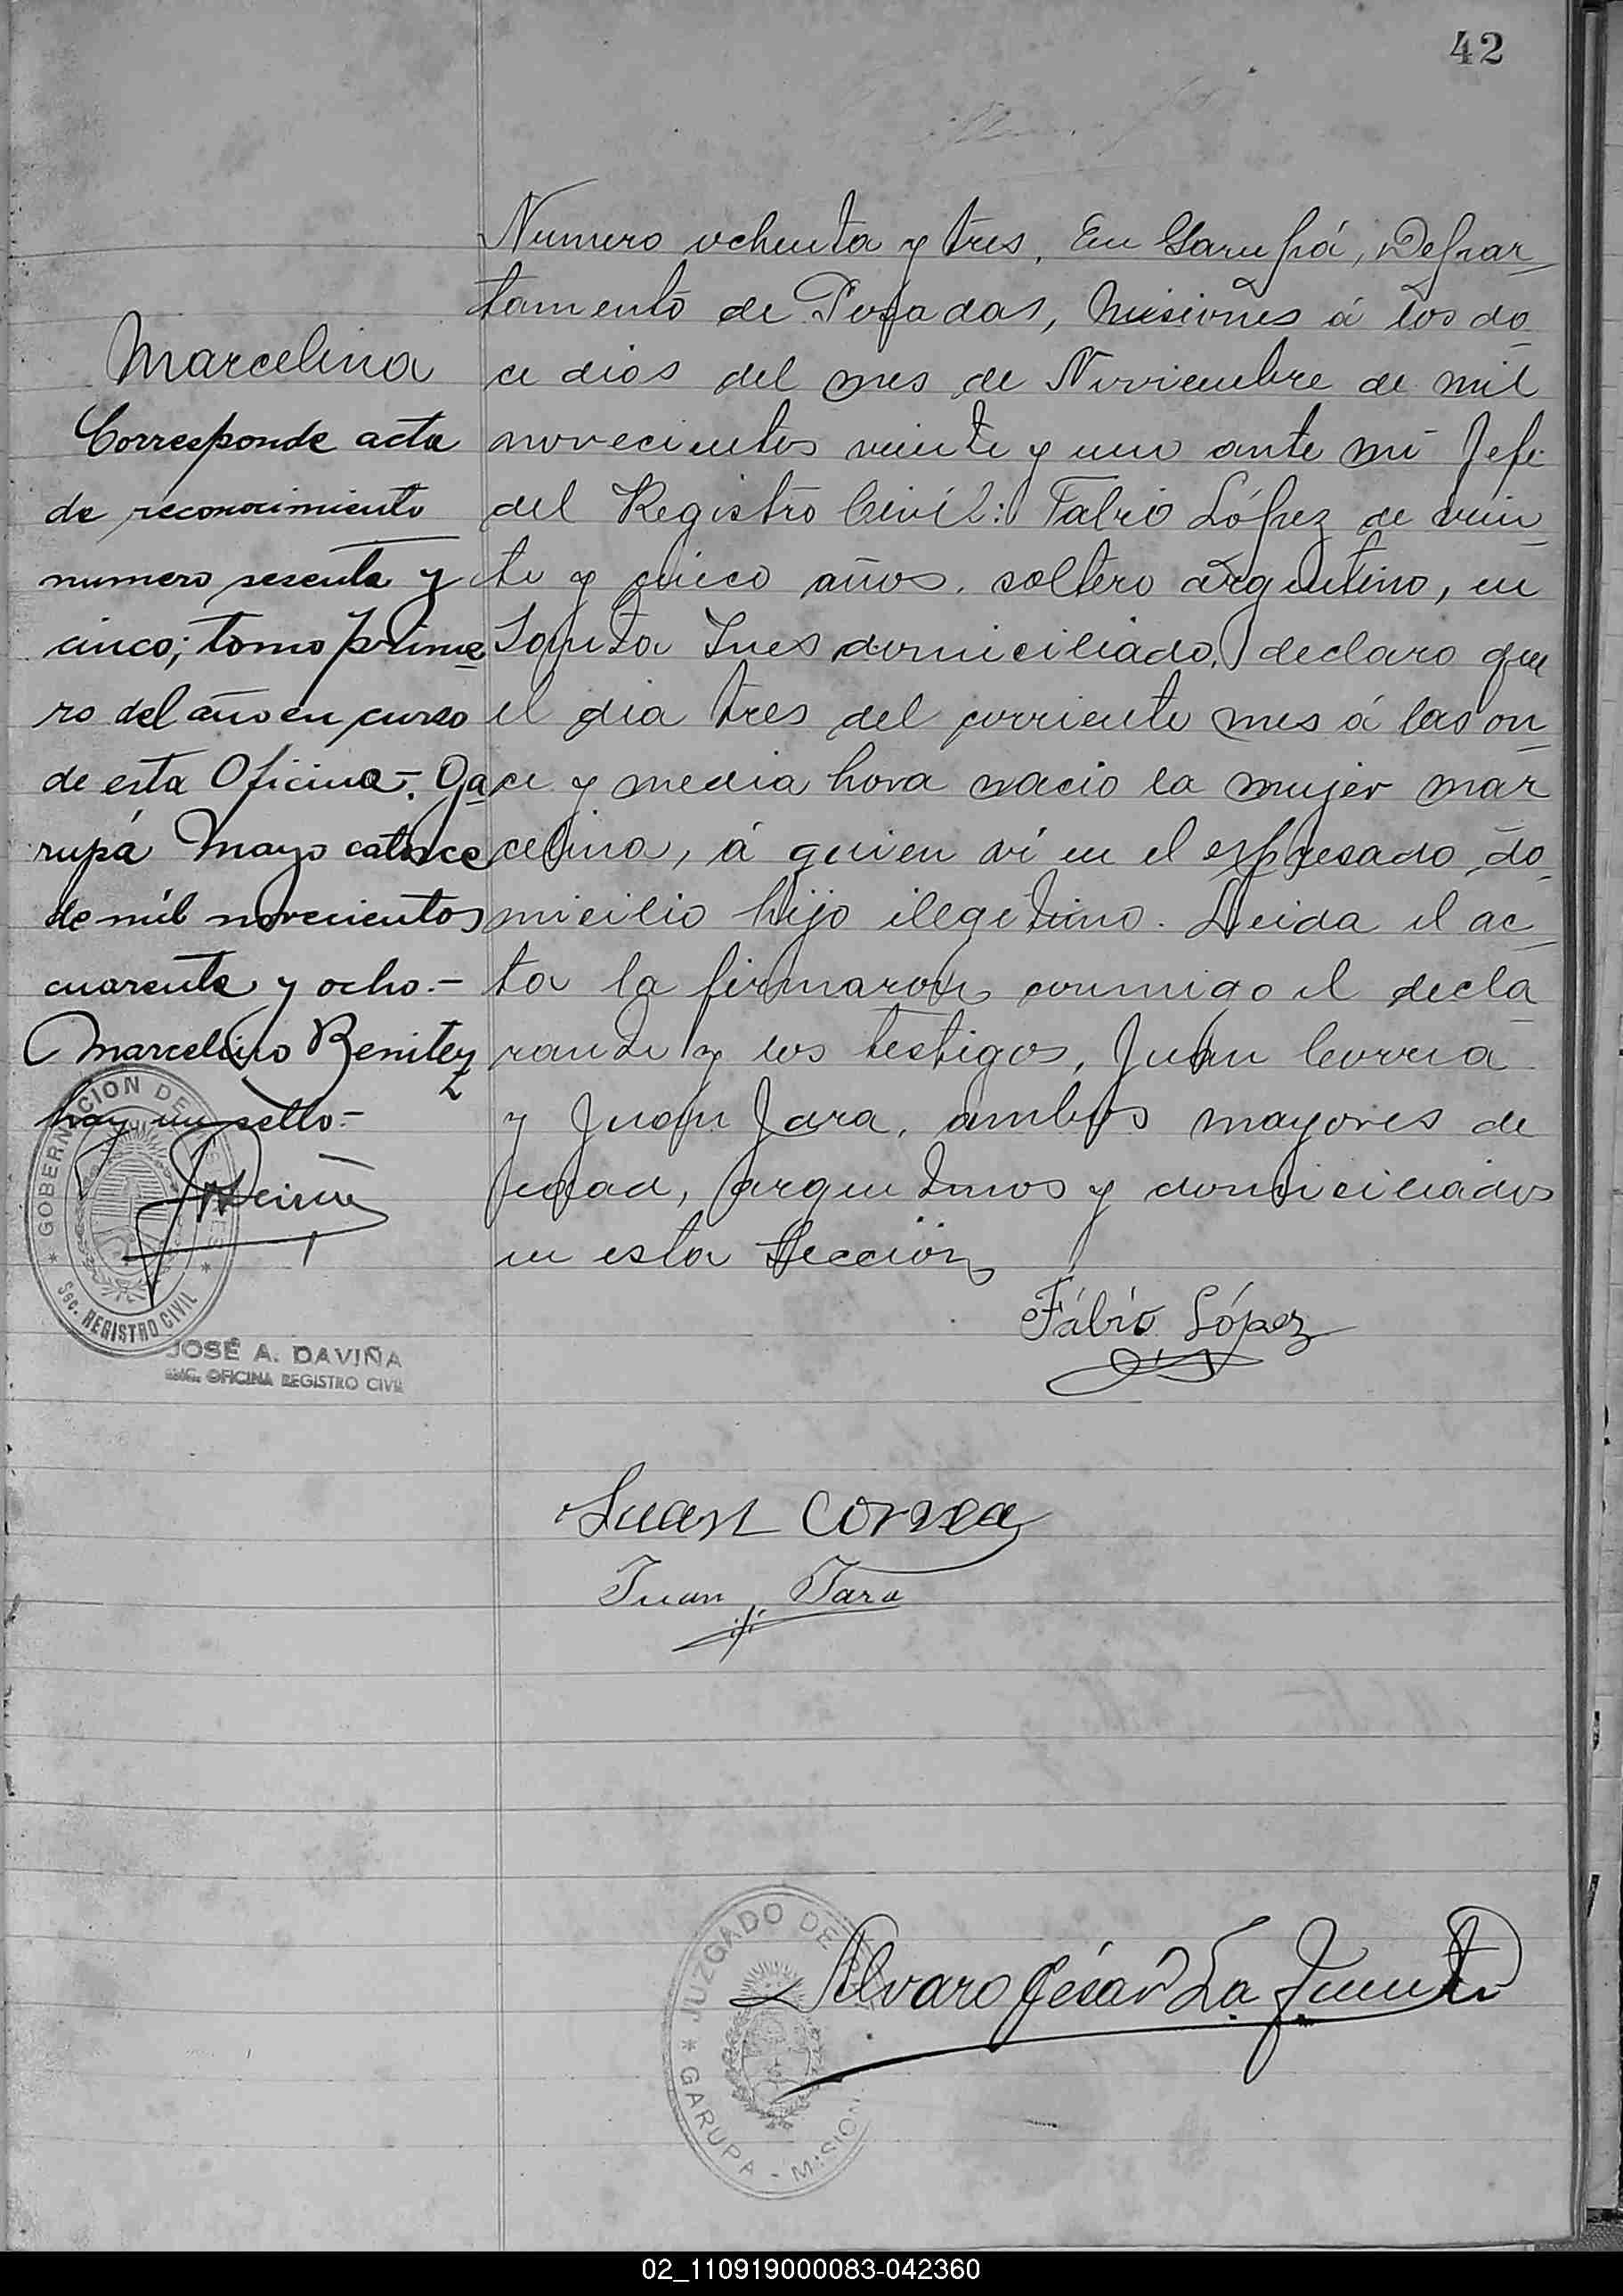 42
Numero ochenta y tres. En Garupá, Depar-
tamento de Posadas, Misiones á los do-
ce dias del mes de Noviembre de mil
novecientos veinte y uno ante mi Jefe
del Registro Civil: Fabio López de vein-
te y cinco años, soltero argentino, en
Santa Ines domiciliado, declaro que
el dia tres del corriente mes á las on-
ce y media hora nacio la mujer Mar
celina, á quien ví en el expresado do-
micilio hijo ilegetimo. Leida el ac-
ta la firmaron conmigo el decla-
rante y los testigos, Juan Correa
y Juan Jara, ambos mayores de
edad, argentinos y domiciliados
en esta Sección
Marcelina
Corresponde acta
de reconocimiento
numero sesenta y
cinco; tomo prime-
ro del año en curso
de esta Oficina-. Ga-
rupá Mayo catorce
de mil novecientos
cuarenta y ocho.-
Marcelino Benitez
hay un sello.-
GOBERNACION DE
Sec. REGISTRO CIVIL
JOSÉ A. DAVIÑA
ENC. OFICINA REGISTRO CIVIL
Fábio López
Juan Correa
Juan Jara
JUZGADO DE PAZ
GARUPA - MISIONES
Alvaro César La Fuente
02_110919000083-042360